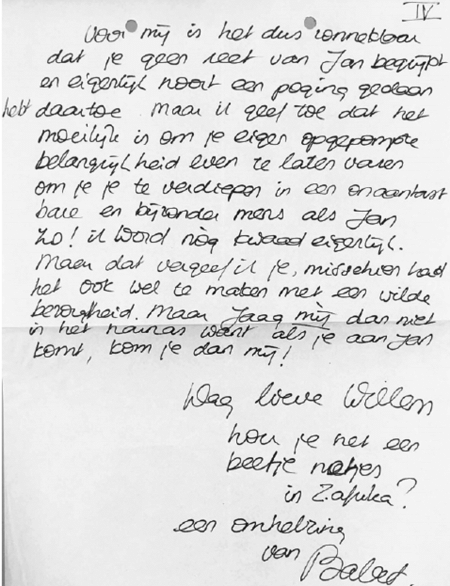 IV
Voor mij is het dus zonneklaar
dat je geen reet van Jan begrijpt
en eigenlijk nooit een poging gedaan
hebt daartoe. Maar ik geef toe dat het
moeilijk is om je eigen opgepompte
belangrijkheid even te laten varen
om je je te verdiepen in een onaantast
bare en bijzonder mens als Jan
Zo! ik word nòg kwaad eigenlijk.
Maar dat vergeef ik je, misschien had
het ook wel te maken met een wilde
bezorgheid. Maar Jaag mij dan niet
in het harnas want als je aan Jan
komt, kom je dan mij!
Dag lieve Willem
hou je het een
beetje netjes
in Z.afrika?
een omhelzing
van Babet.